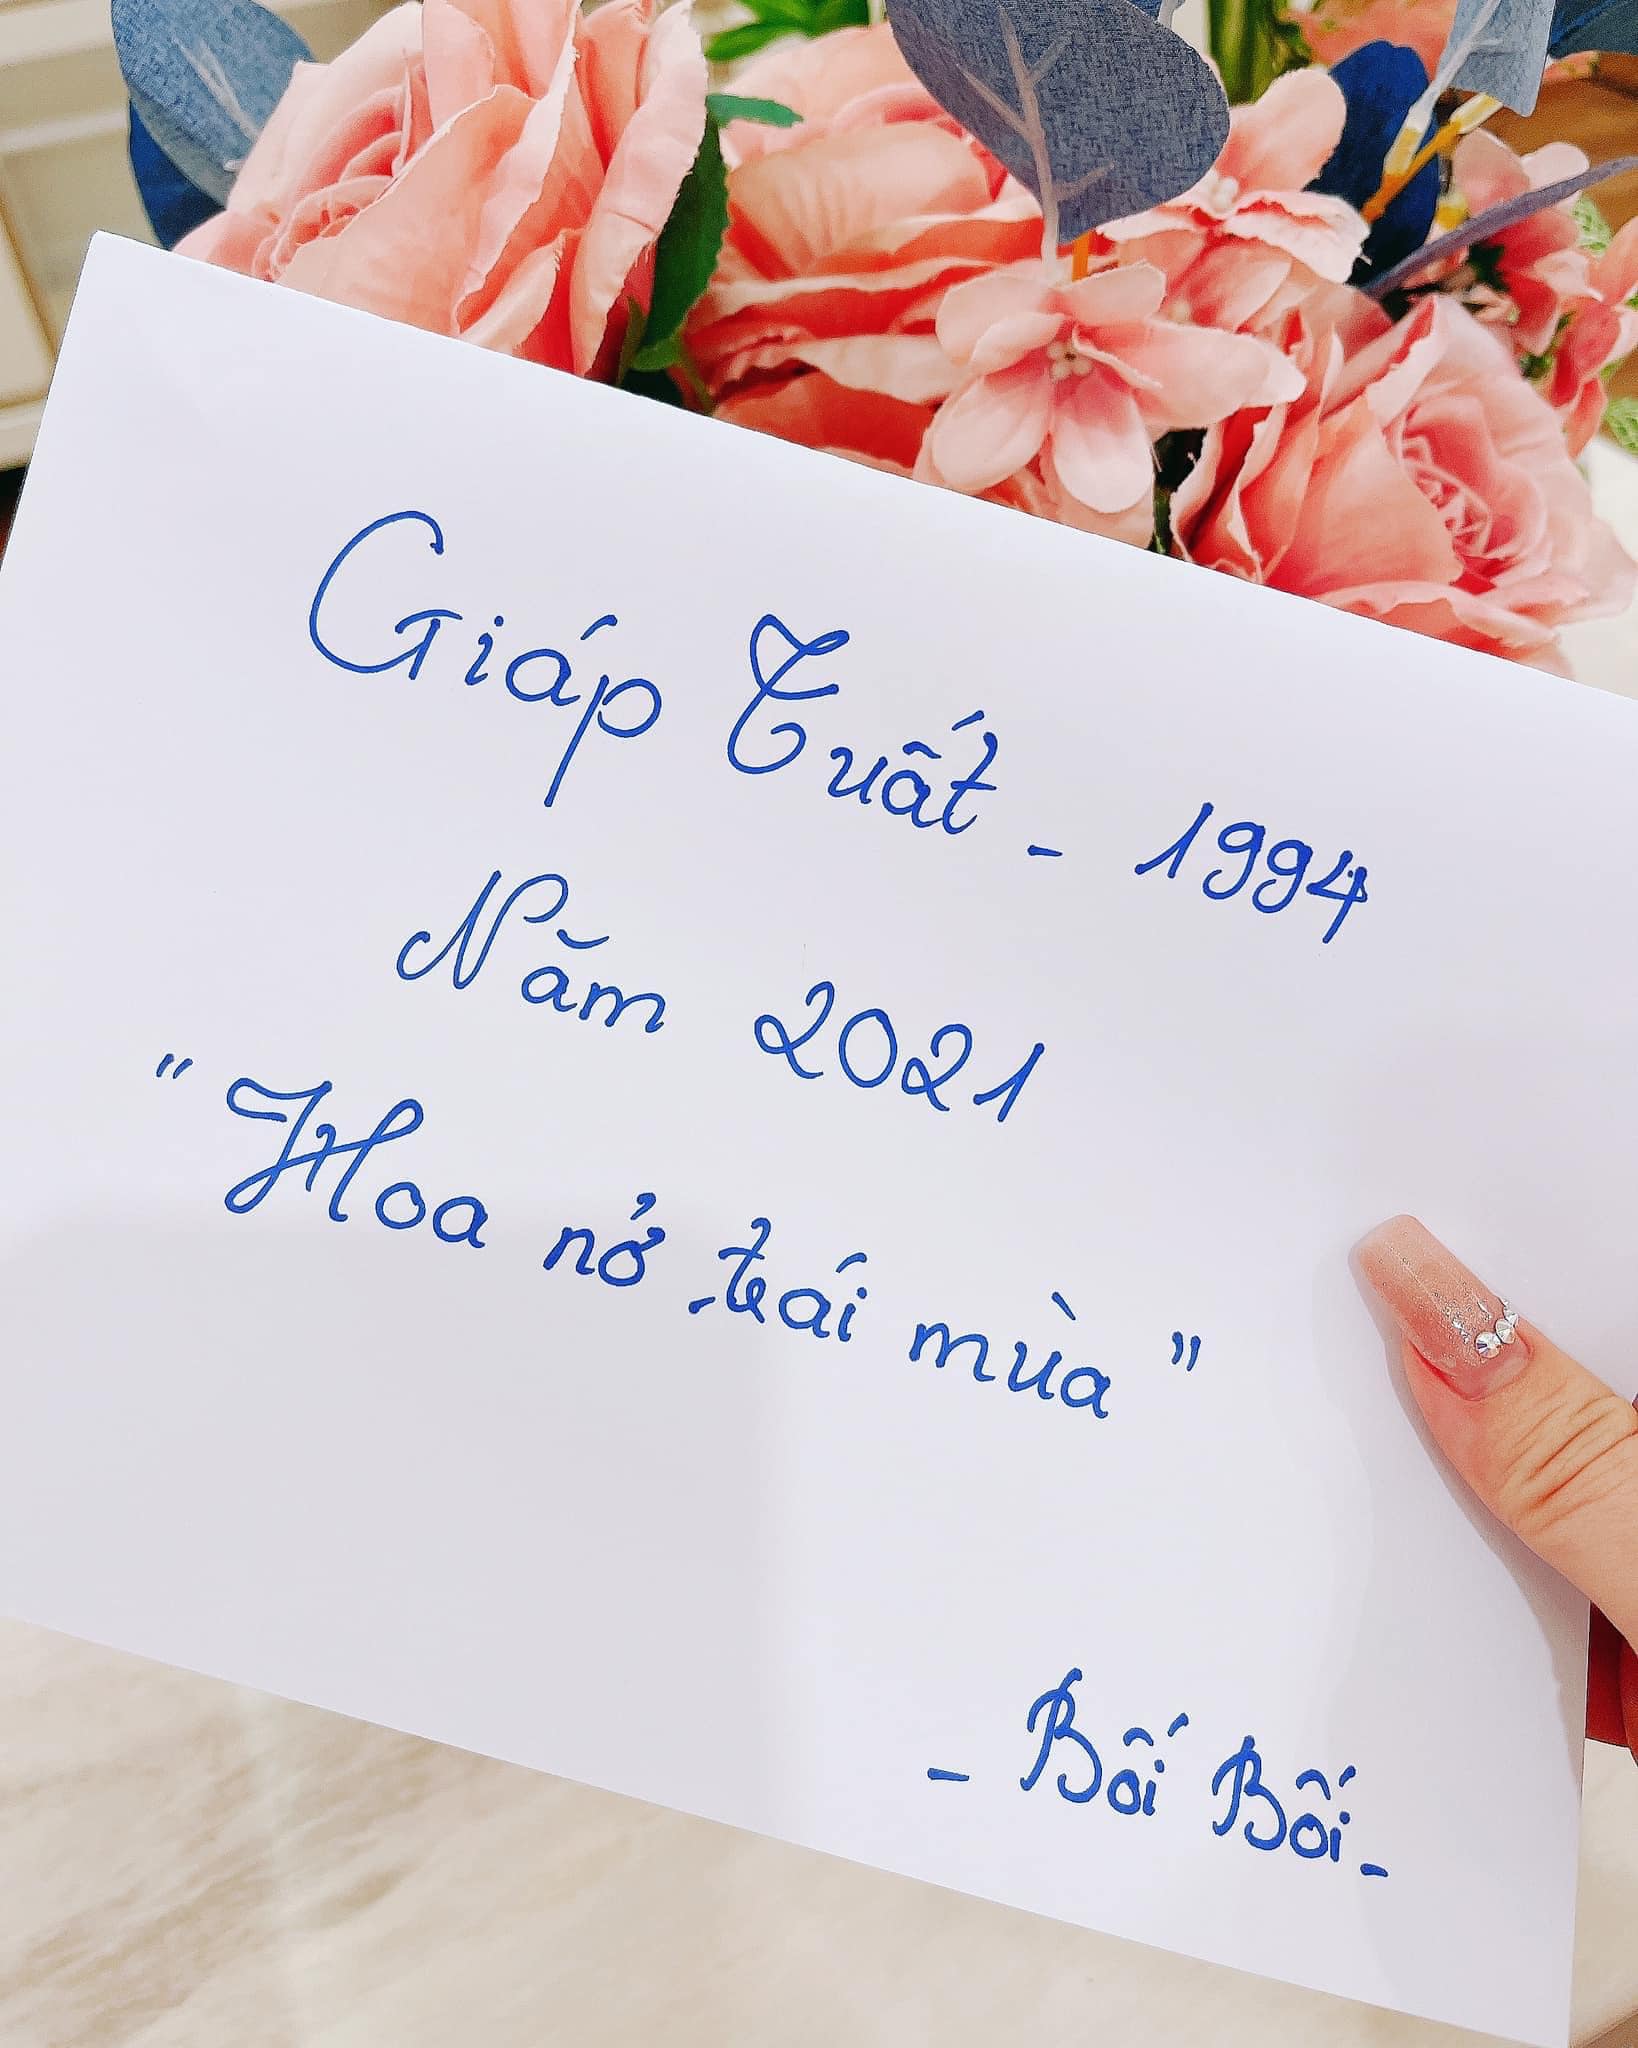 Giáp Tuất - 1994
Năm 2021
"Hoa nở trái mùa"
- Bối Bối -